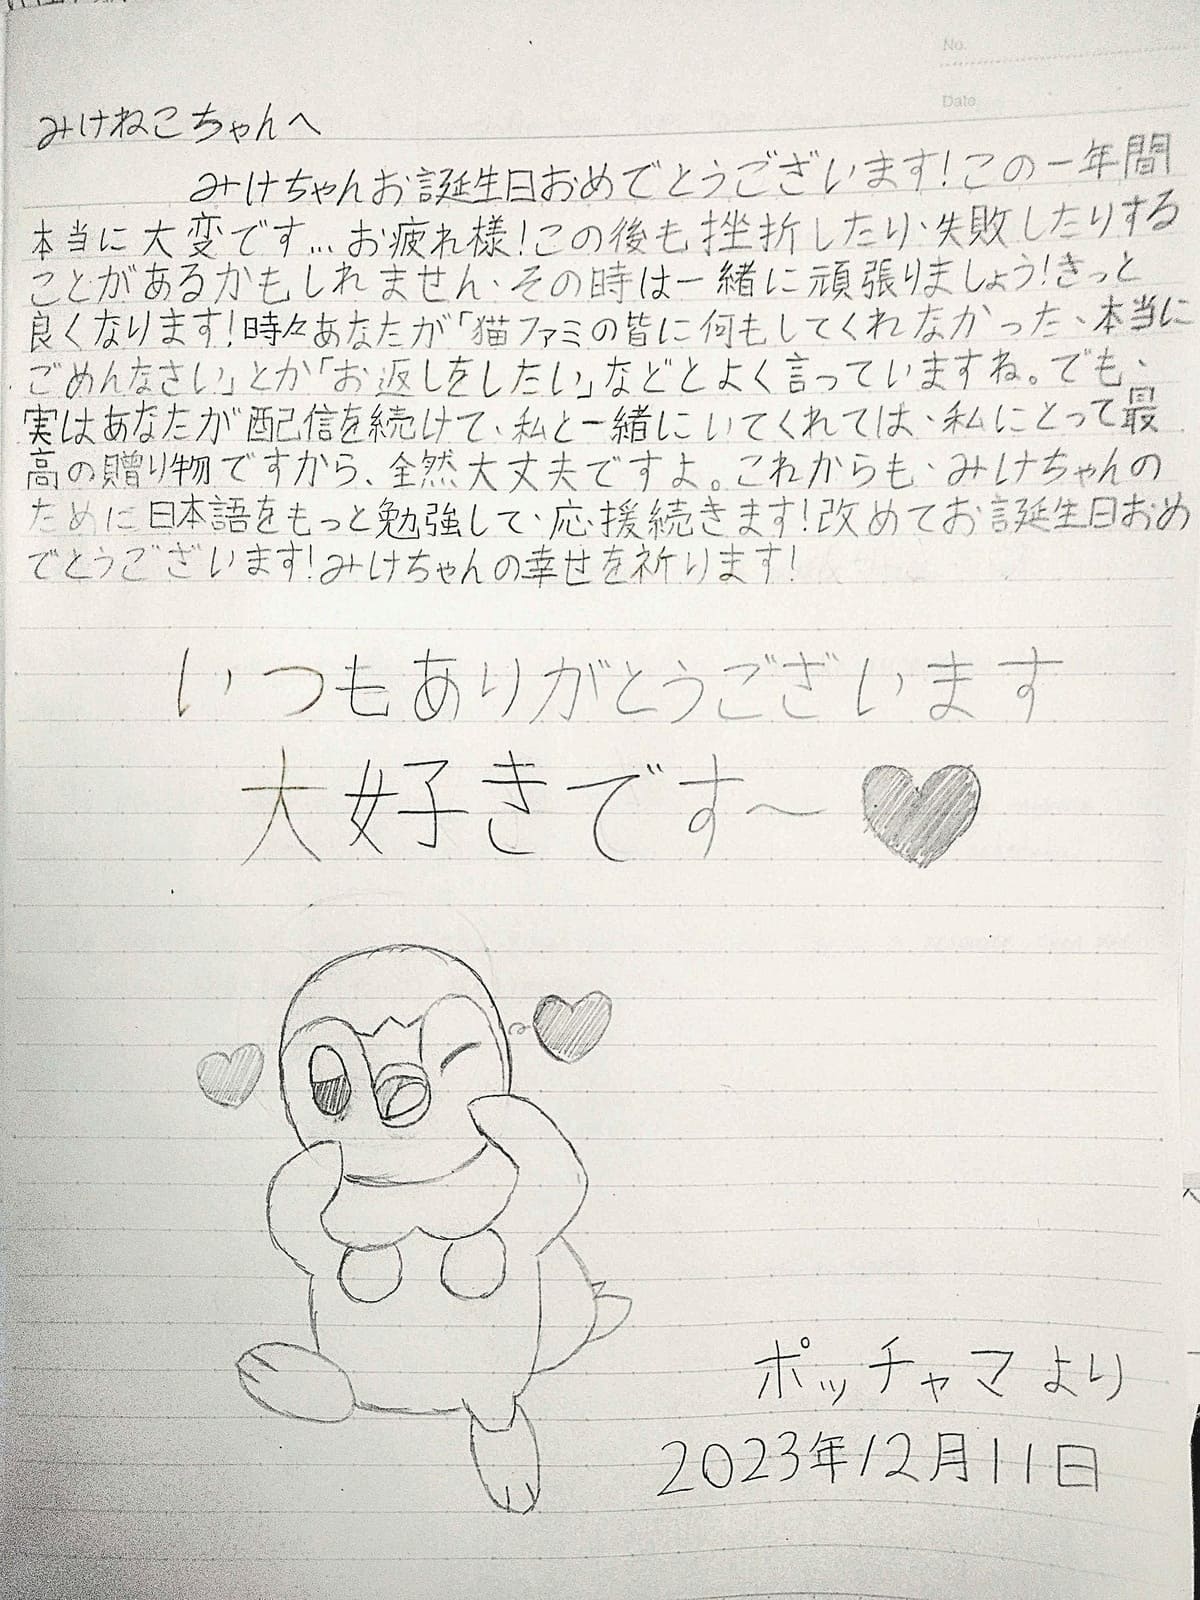 No.
Date
みけねこちゃんへ
みけちゃんお誕生日おめでとうございます!この一年間
本当に大変です...お疲れ様!この後も挫折したり、失敗したりする
ことがあるかもしれません、その時は一緒に頑張りましょう!きっと
良くなります!時々あなたが「猫ファミの皆に何もしてくれなかった、本当に
ごめんなさい」とか「お返しをしたい」などとよく言っていますね。でも、
実はあなたが配信を続けて、私と一緒にいてくれては、私にとって最
高の贈り物ですから、全然大丈夫ですよ。これからも、みけちゃんの
ために日本語をもっと勉強して、応援続きます!改めてお誕生日おめ
でとうございます!みけちゃんの幸せを祈ります!
いつもありがとうございます
大好きです~
ポッチャマより
2023年12月11日